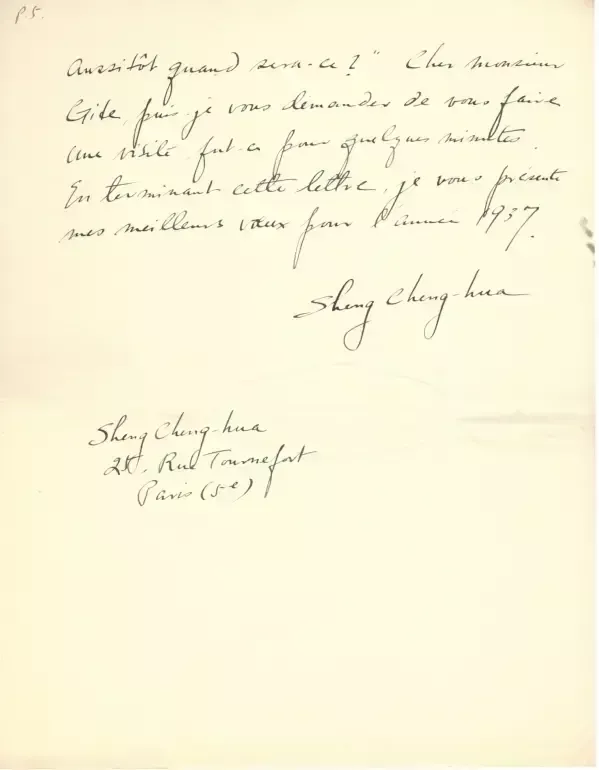 P.5.
Aussitôt quand sera-ce ?" Cher monsieur
Gide, puis-je vous demander de vous faire
une visite, fut-ce pour quelques minutes.
En terminant cette lettre, je vous présente
mes meilleurs vœux pour l'année 1937.
Sheng Cheng-hua
Sheng Cheng-hua
Rue Tournefort
Paris (5e)